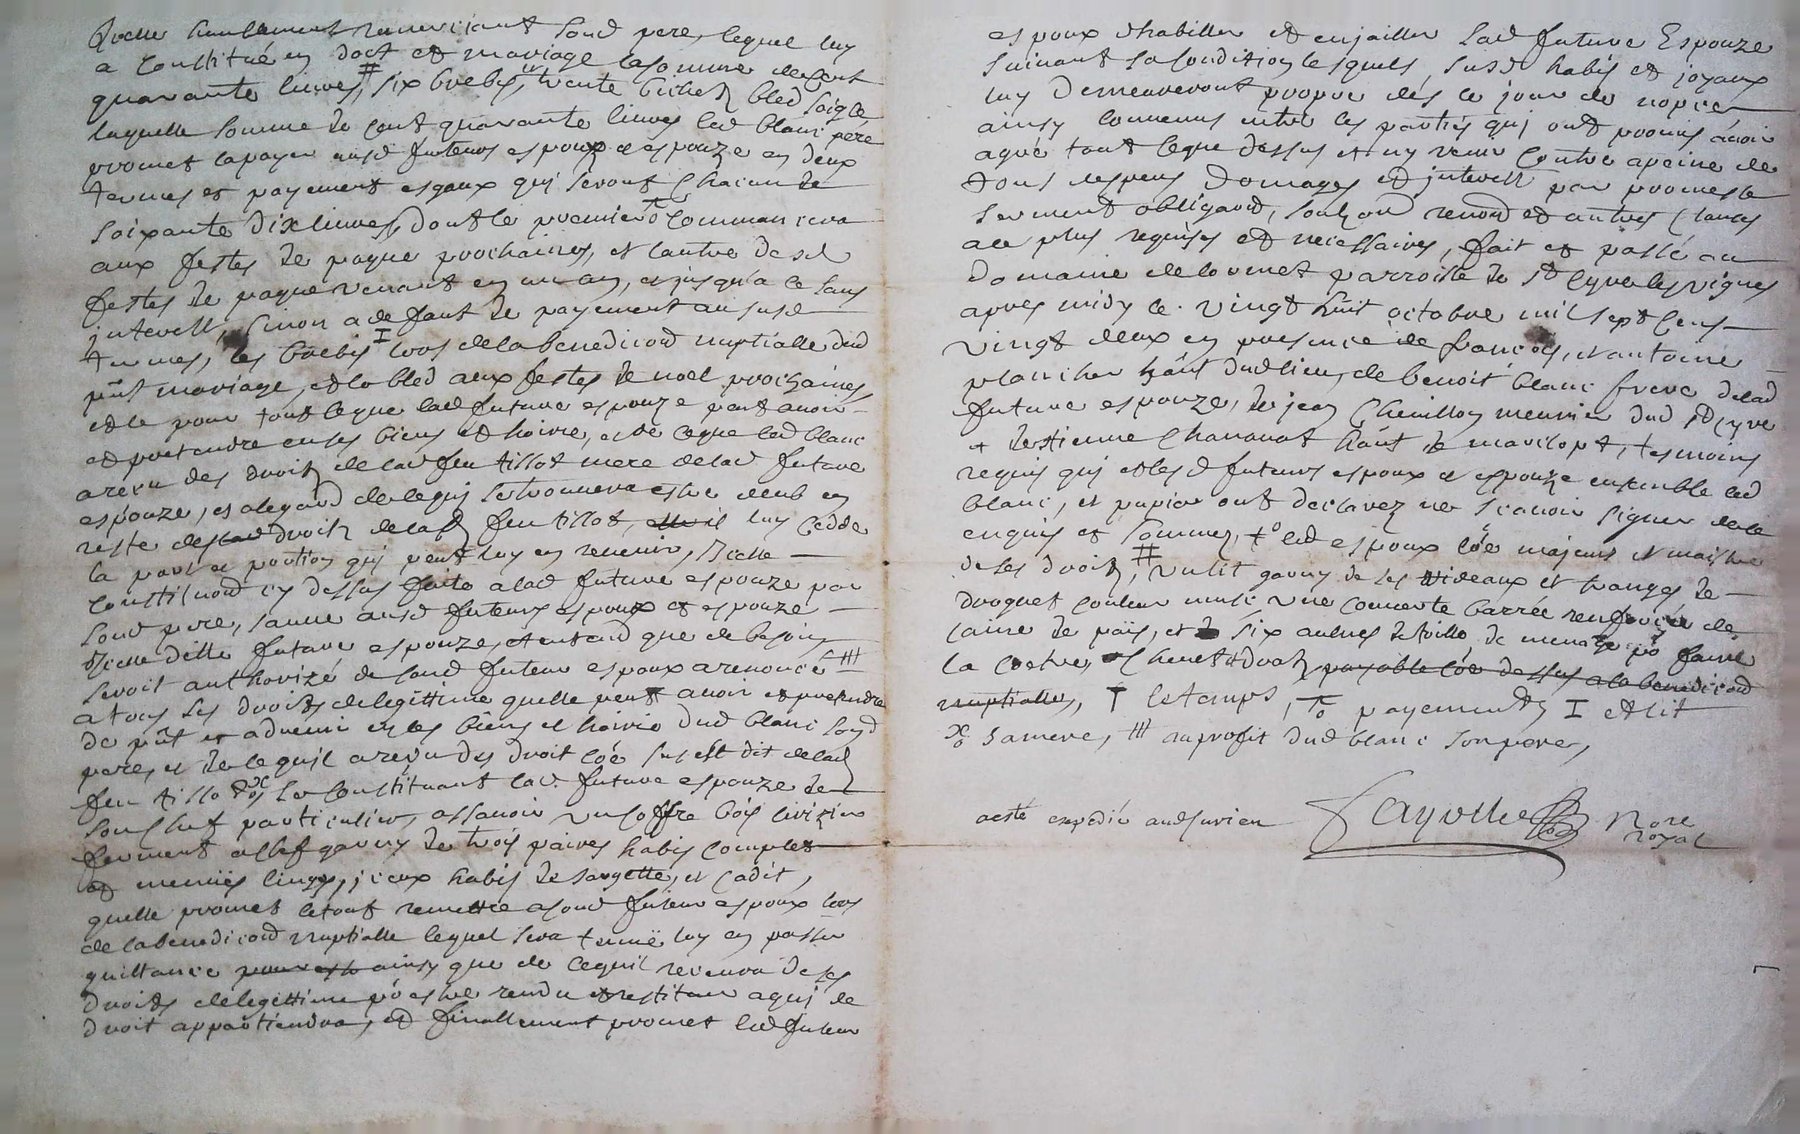 Icelle humblement remerciant sond pere, lequel luy
a constitué en doct et mariage la somme de cent
quarante livres, # six brebis, trente bichets bled soigle
laquelle somme de cent quarante livres led blanc pere
promet la payer ausd futeurs espoux et espouze en deux
termes et payement esgaux qui seront chacun de
soixante dix livres, dont le premier commancera
aux festes de paque prochaines, et lautre desd
festes de paque venant en un an, et jusqu'a ce sans
interest, sinon a defaut de payement aususd
termes, les brebis I lors de la benediction nuptialle dud
pnt mariage, et le bled aux festes de noel prochaines
et le pour tout ce que lad future espouze peut avoir
et pretandre en ses biens et hoirie, et de ce que led blanc
a recu des droits de lad feu tillot mere de lad future
espouze, et a legard de ce qui se trouvera estre deub en
reste des droits de lad feu tillot, luy cedde
la part et portion qui peut luy en revenir, Icelle
constitution cy dessus faite a lad future espouze par
sond pere, sauve ausd futeurs espoux et espouze
Icelle ditte future espouze, et entand que de besoin
seroit authorizé de sond futeur espoux a renoncé #
a tous ses droits de legittime quelle peut avoir et pretendre
de pnt et advenir es les biens et hoirie dud blanc sond
pere, et de ce quil a recu des droit coe sus est dit de lad
feu tillot se constituant lad future espouze de
son chef particulier, assavoir un coffre bois
ferment a clef garny de trois paires habis complet
et menues linges, iceux habis de sargette, et cadit,
quelle promet le tout remettre a sond futeur espoux lors
de la benediction nuptialle lequel sera tenuë luy en passer
quittance pour este ainsy que de ce quil recevra de ses
droits de legittime po estre rendu et restituer a qui de
droit appartiendra, et finallement promet led futeur
espoux dhabiller et enjailler lad future Espouze
suivant sa condition lesquels susd habis et joyaux
luy demeureront propre des ce jour de nopces
ainsy convenus entre les parties qui ont promis avoir
agré tout ce que dessus et ny venir contre a peine de
tous despens domages et interest par promesse
serment obligaon, soubzon renon et autres clauses
a ce plus requises et necessaires, fait et passé au
domaine de lormet parroisse de st Cyre les vignes
apres midy le vingt huit octobre mil sept cens
vingt deux en presence de francois, et antoine
plancher hânt dud lieu, de benoit blanc frere de lad
future espouze, de jean Chevillon meunier dud st Cyre
+ destienne Chananot hânt de marclopt, tesmoins
requis qui et lesd futeurs espoux et espouze ensemble led
blanc, et papier ont declarez ne scavoir signer de ce
enquis et sommez, + led espoux coe majeur et maistre
de ses droits, # un lit garny de ses rideaux et franges de
droguet couleur musc une couverte barrée renforcée de
laine de païs, et six aulnes de toille de menage po faire
la coetre, payable coe dessus a la benediction
nuptialles, T letemps, To payements I et lit
xo samere, # au profit dud blanc son pere,
aesté expedié audsurieu Fayolle Nore
royal